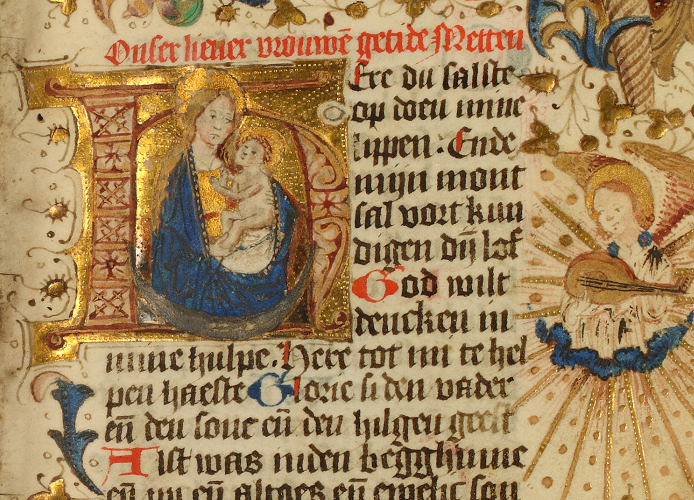 Onser liever vrouwē getide Metten
Ere du salste
op doen mine
lippen. Ende
mijn mont
sal vort kun
digen dij lof
God wilt
dencken in
mine hulpe. Here tot mi te hel
pen haeste Glorie si den vader
eñ den sone eñ den hilgen geest
Alst was inden beg̃hinne
eñ nu eñ altoes eñ ewelic son